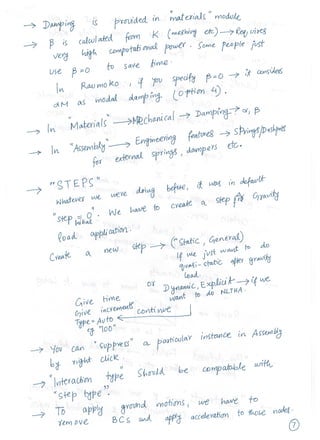 → Damping is provided in "materials" module
→ β is calculated from K (meshing etc) → Requires
very high computational power. Some people just
use β=0 to save time.
In Raumoko, if you specify β=0 → it considers
αM as modal damping (option 4).
→ In "Materials" → Mechanical → Damping → α, β
→ In "Assembly" → Engineering features → Springs/Dashpots
for external springs, dampers etc.
→ "STEPS"
Whatever we were doing before, it was in default
"step = 0". We have to create a step for Gravity
Initial
load application.
Create a new step → ("Static, General)
If we just want to do
quasi-static after gravity
load.
or Dynamic, Explicit → if we
want to do NLTHA.
Give time
Give increments continue
Type = Auto
eg "100"
→ You can "suppress" a particular instance in Assembly
by right click.
→ "Interaction type" should be compatable with
"step type".
→ To apply ground motions, we have to
remove BCs and apply acceleration to those nodes.
7